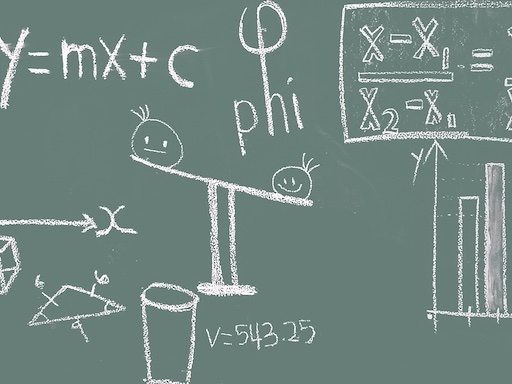 y=mx+c
φ
phi
x-x₁
=
x₂-x₁
y
x
6
6
9
V=543.25